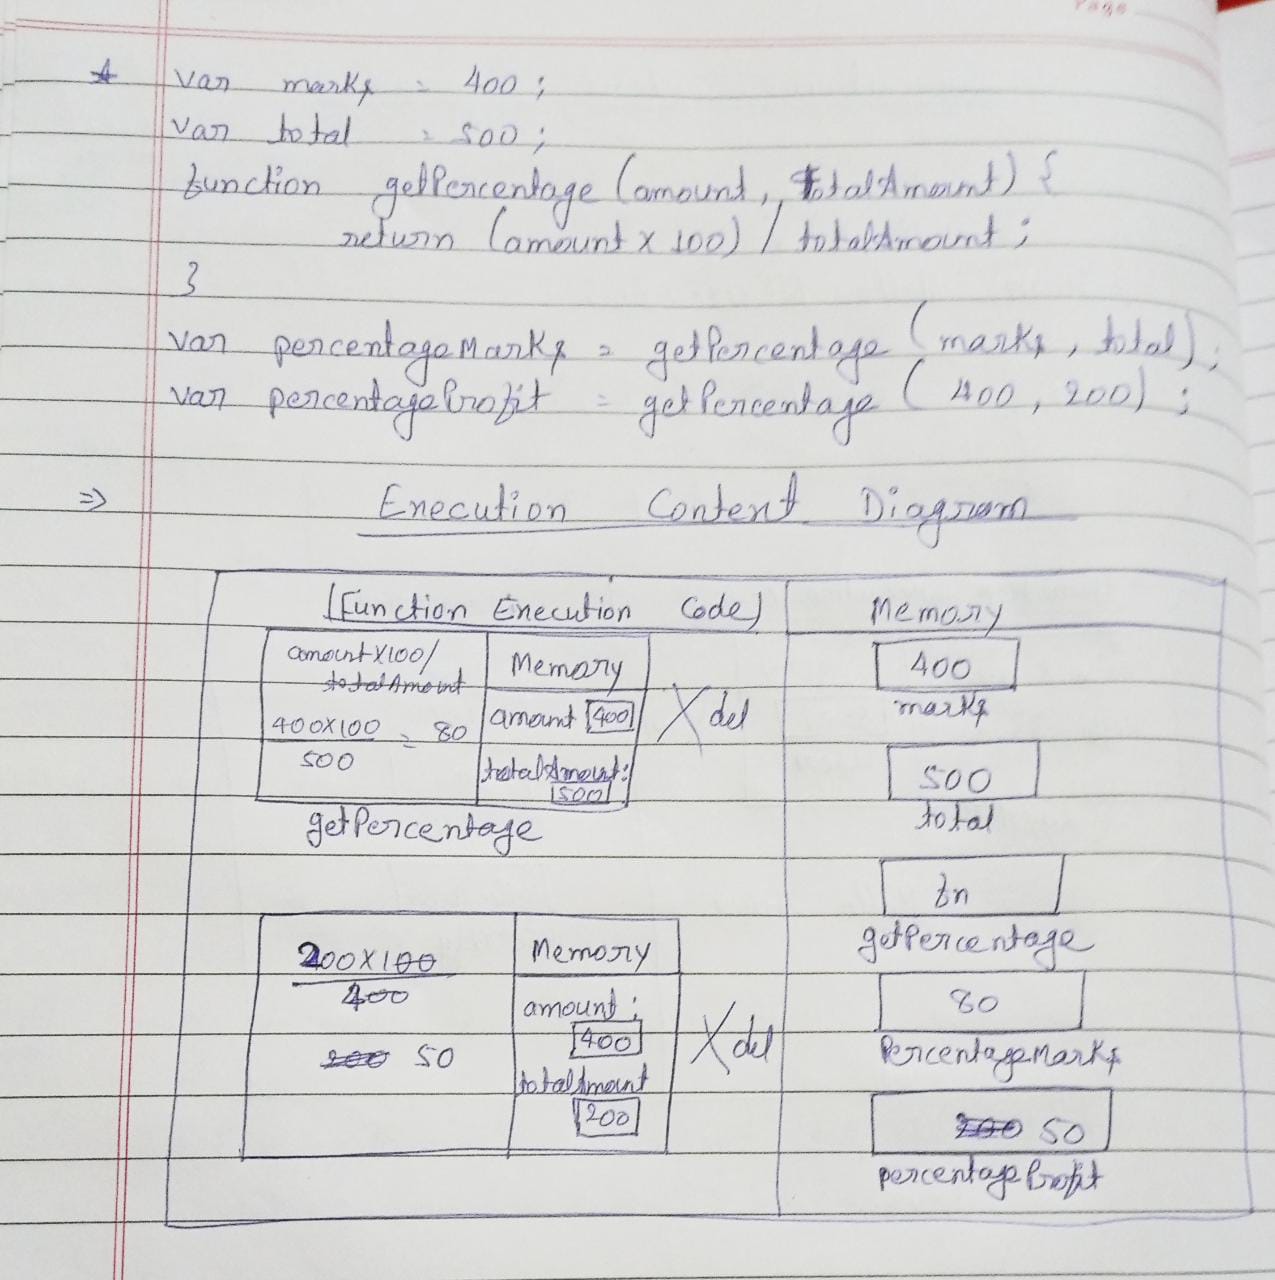 Page
var marks = 400 ;
var total = 500 ;
function getPercentage (amount, totalAmount) {
return (amount x 100) / totalAmount ;
}
var percentageMarks = getPercentage (marks, total) ;
var percentageProfit = getPercentage ( 400, 200) ;
=> Execution Context Diagram
[Function Execution Code]
amount x 100 /
totalAmount
400 x 100 = 80
500
Memory
amount 400
totalAmount:
500
X del
getPercentage
200 x 100
400
200 50
Memory
amount :
400
totalAmount
200
X del
Memory
400
marks
500
total
fn
getPercentage
80
PercentageMarks
200 50
percentageProfit